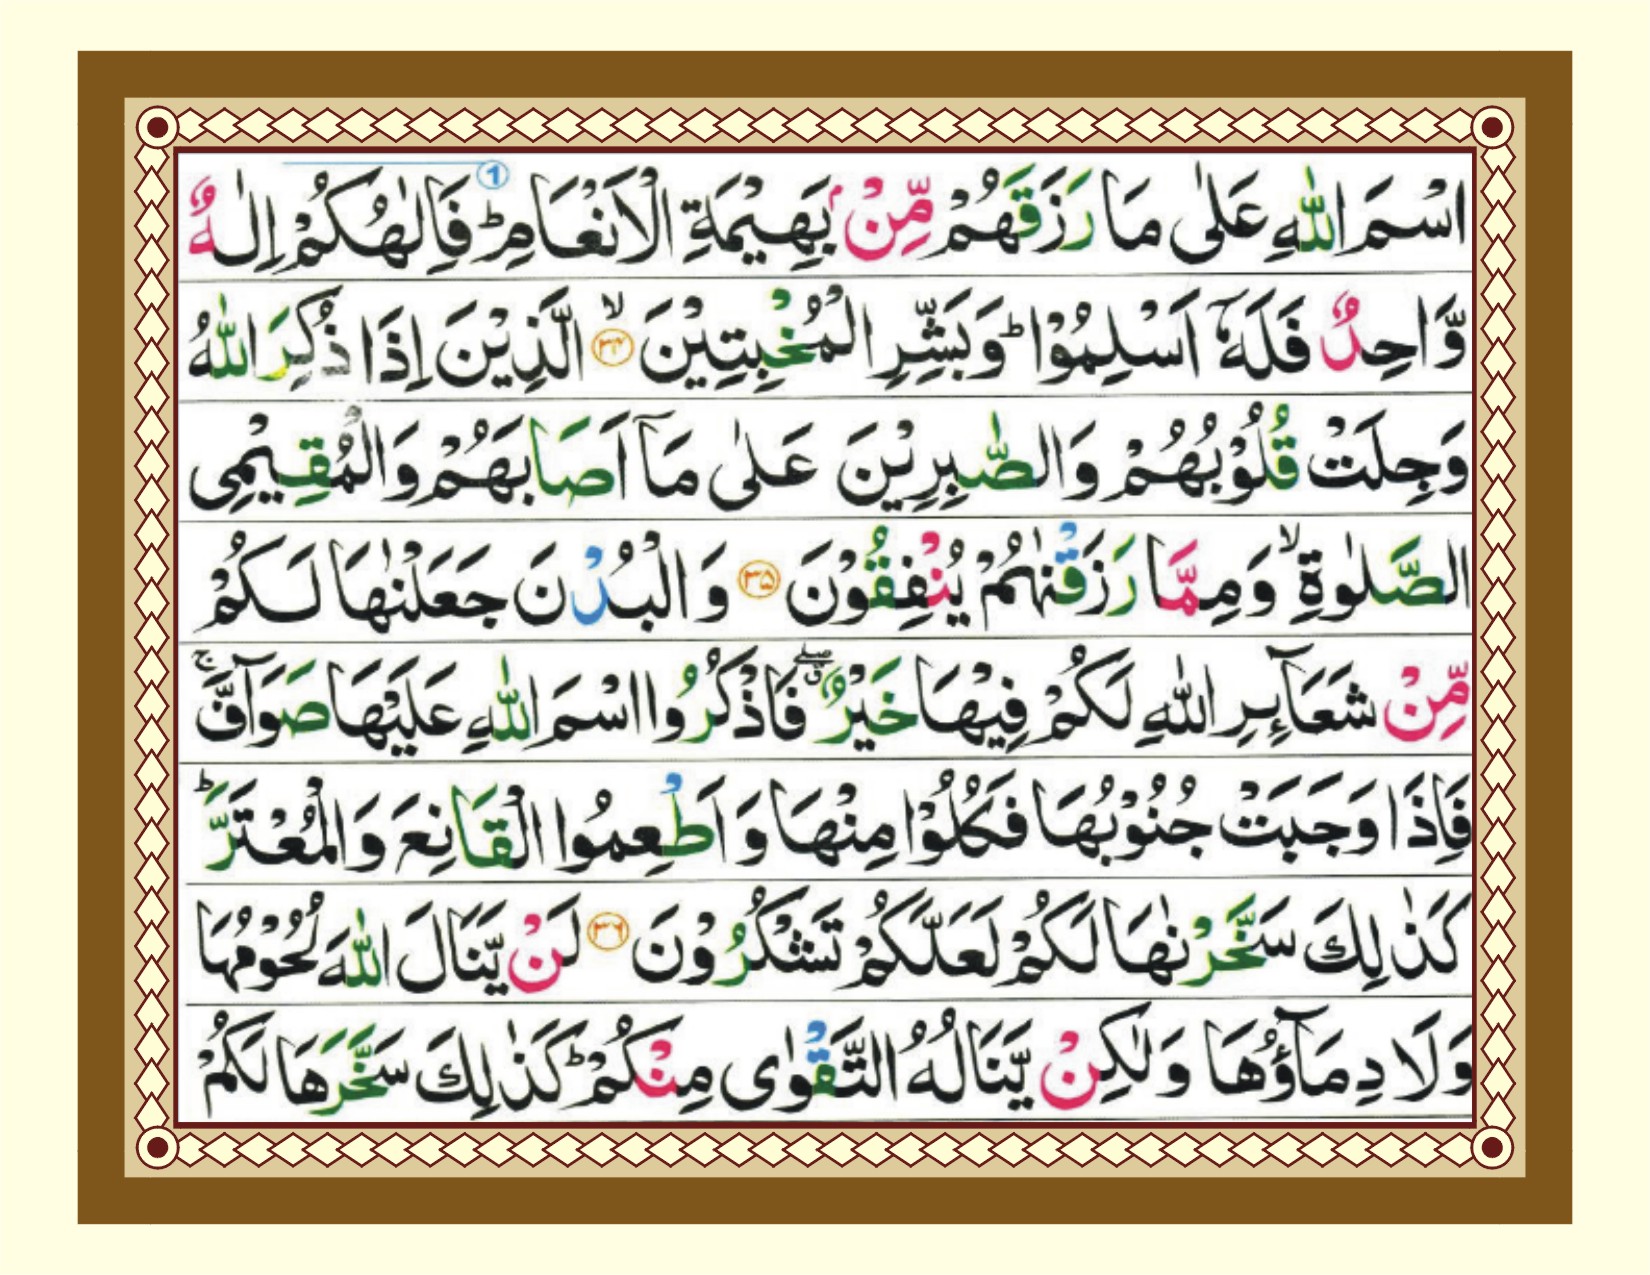 اسْمَ اللّٰهِ عَلٰى مَا رَزَقَهُمْ مِّنْۢ بَهِيْمَةِ الْاَنْعَامِ ؕ فَاِلٰهُكُمْ اِلٰهٌ ①
وَّاحِدٌ فَلَهٗۤ اَسْلِمُوْا ؕ وَبَشِّرِ الْمُخْبِتِيْنَ ۙ ﴿۳۴﴾ الَّذِيْنَ اِذَا ذُكِرَ اللّٰهُ
وَجِلَتْ قُلُوْبُهُمْ وَالصّٰبِرِيْنَ عَلٰى مَاۤ اَصَابَهُمْ وَالْمُقِيْمِى
الصَّلٰوةِ ۙ وَمِمَّا رَزَقْنٰهُمْ يُنْفِقُوْنَ ﴿۳۵﴾ وَالْبُدْنَ جَعَلْنٰهَا لَكُمْ
مِّنْ شَعَآئِرِ اللّٰهِ لَكُمْ فِيْهَا خَيْرٌ ۖق فَاذْكُرُوا اسْمَ اللّٰهِ عَلَيْهَا صَوَآفَّ ۚ
فَاِذَا وَجَبَتْ جُنُوْبُهَا فَكُلُوْا مِنْهَا وَاَطْعِمُوا الْقَانِعَ وَالْمُعْتَرَّ ؕ
كَذٰلِكَ سَخَّرْنٰهَا لَكُمْ لَعَلَّكُمْ تَشْكُرُوْنَ ﴿۳۶﴾ لَنْ يَّنَالَ اللّٰهَ لُحُوْمُهَا
وَلَا دِمَآؤُهَا وَلٰكِنْ يَّنَالُهُ التَّقْوٰى مِنْكُمْ ؕ كَذٰلِكَ سَخَّرَهَا لَكُمْ